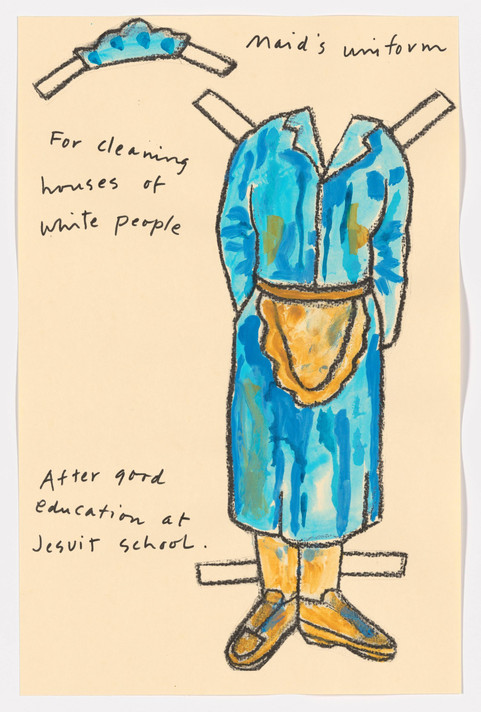 Maid's uniform
For cleaning
houses of
white people
After good
education at
Jesuit school.